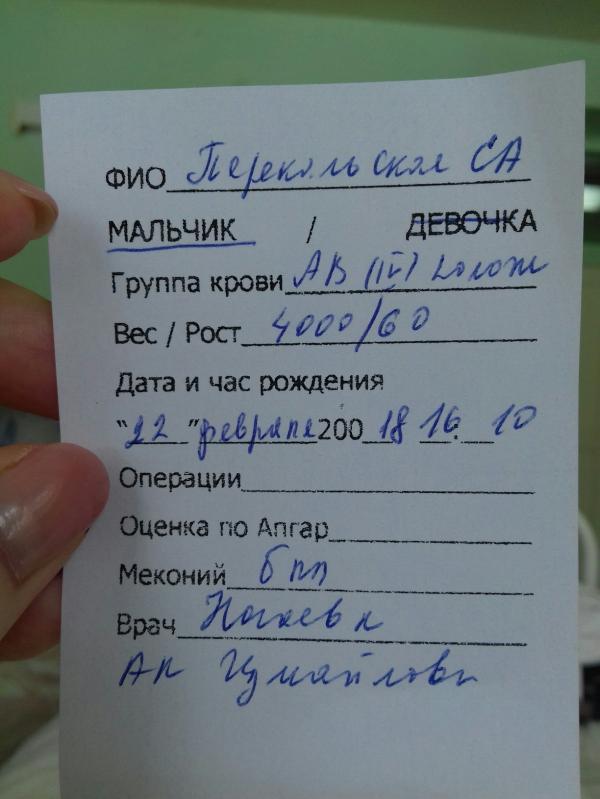 ФИО Перекольская СА
МАЛЬЧИК / ДЕВОЧКА
Группа крови АВ (IV)
Вес / Рост 4000/60
Дата и час рождения
"22" февраля 200 18 16. 10
Операции
Оценка по Апгар
Меконий бпп
Врач